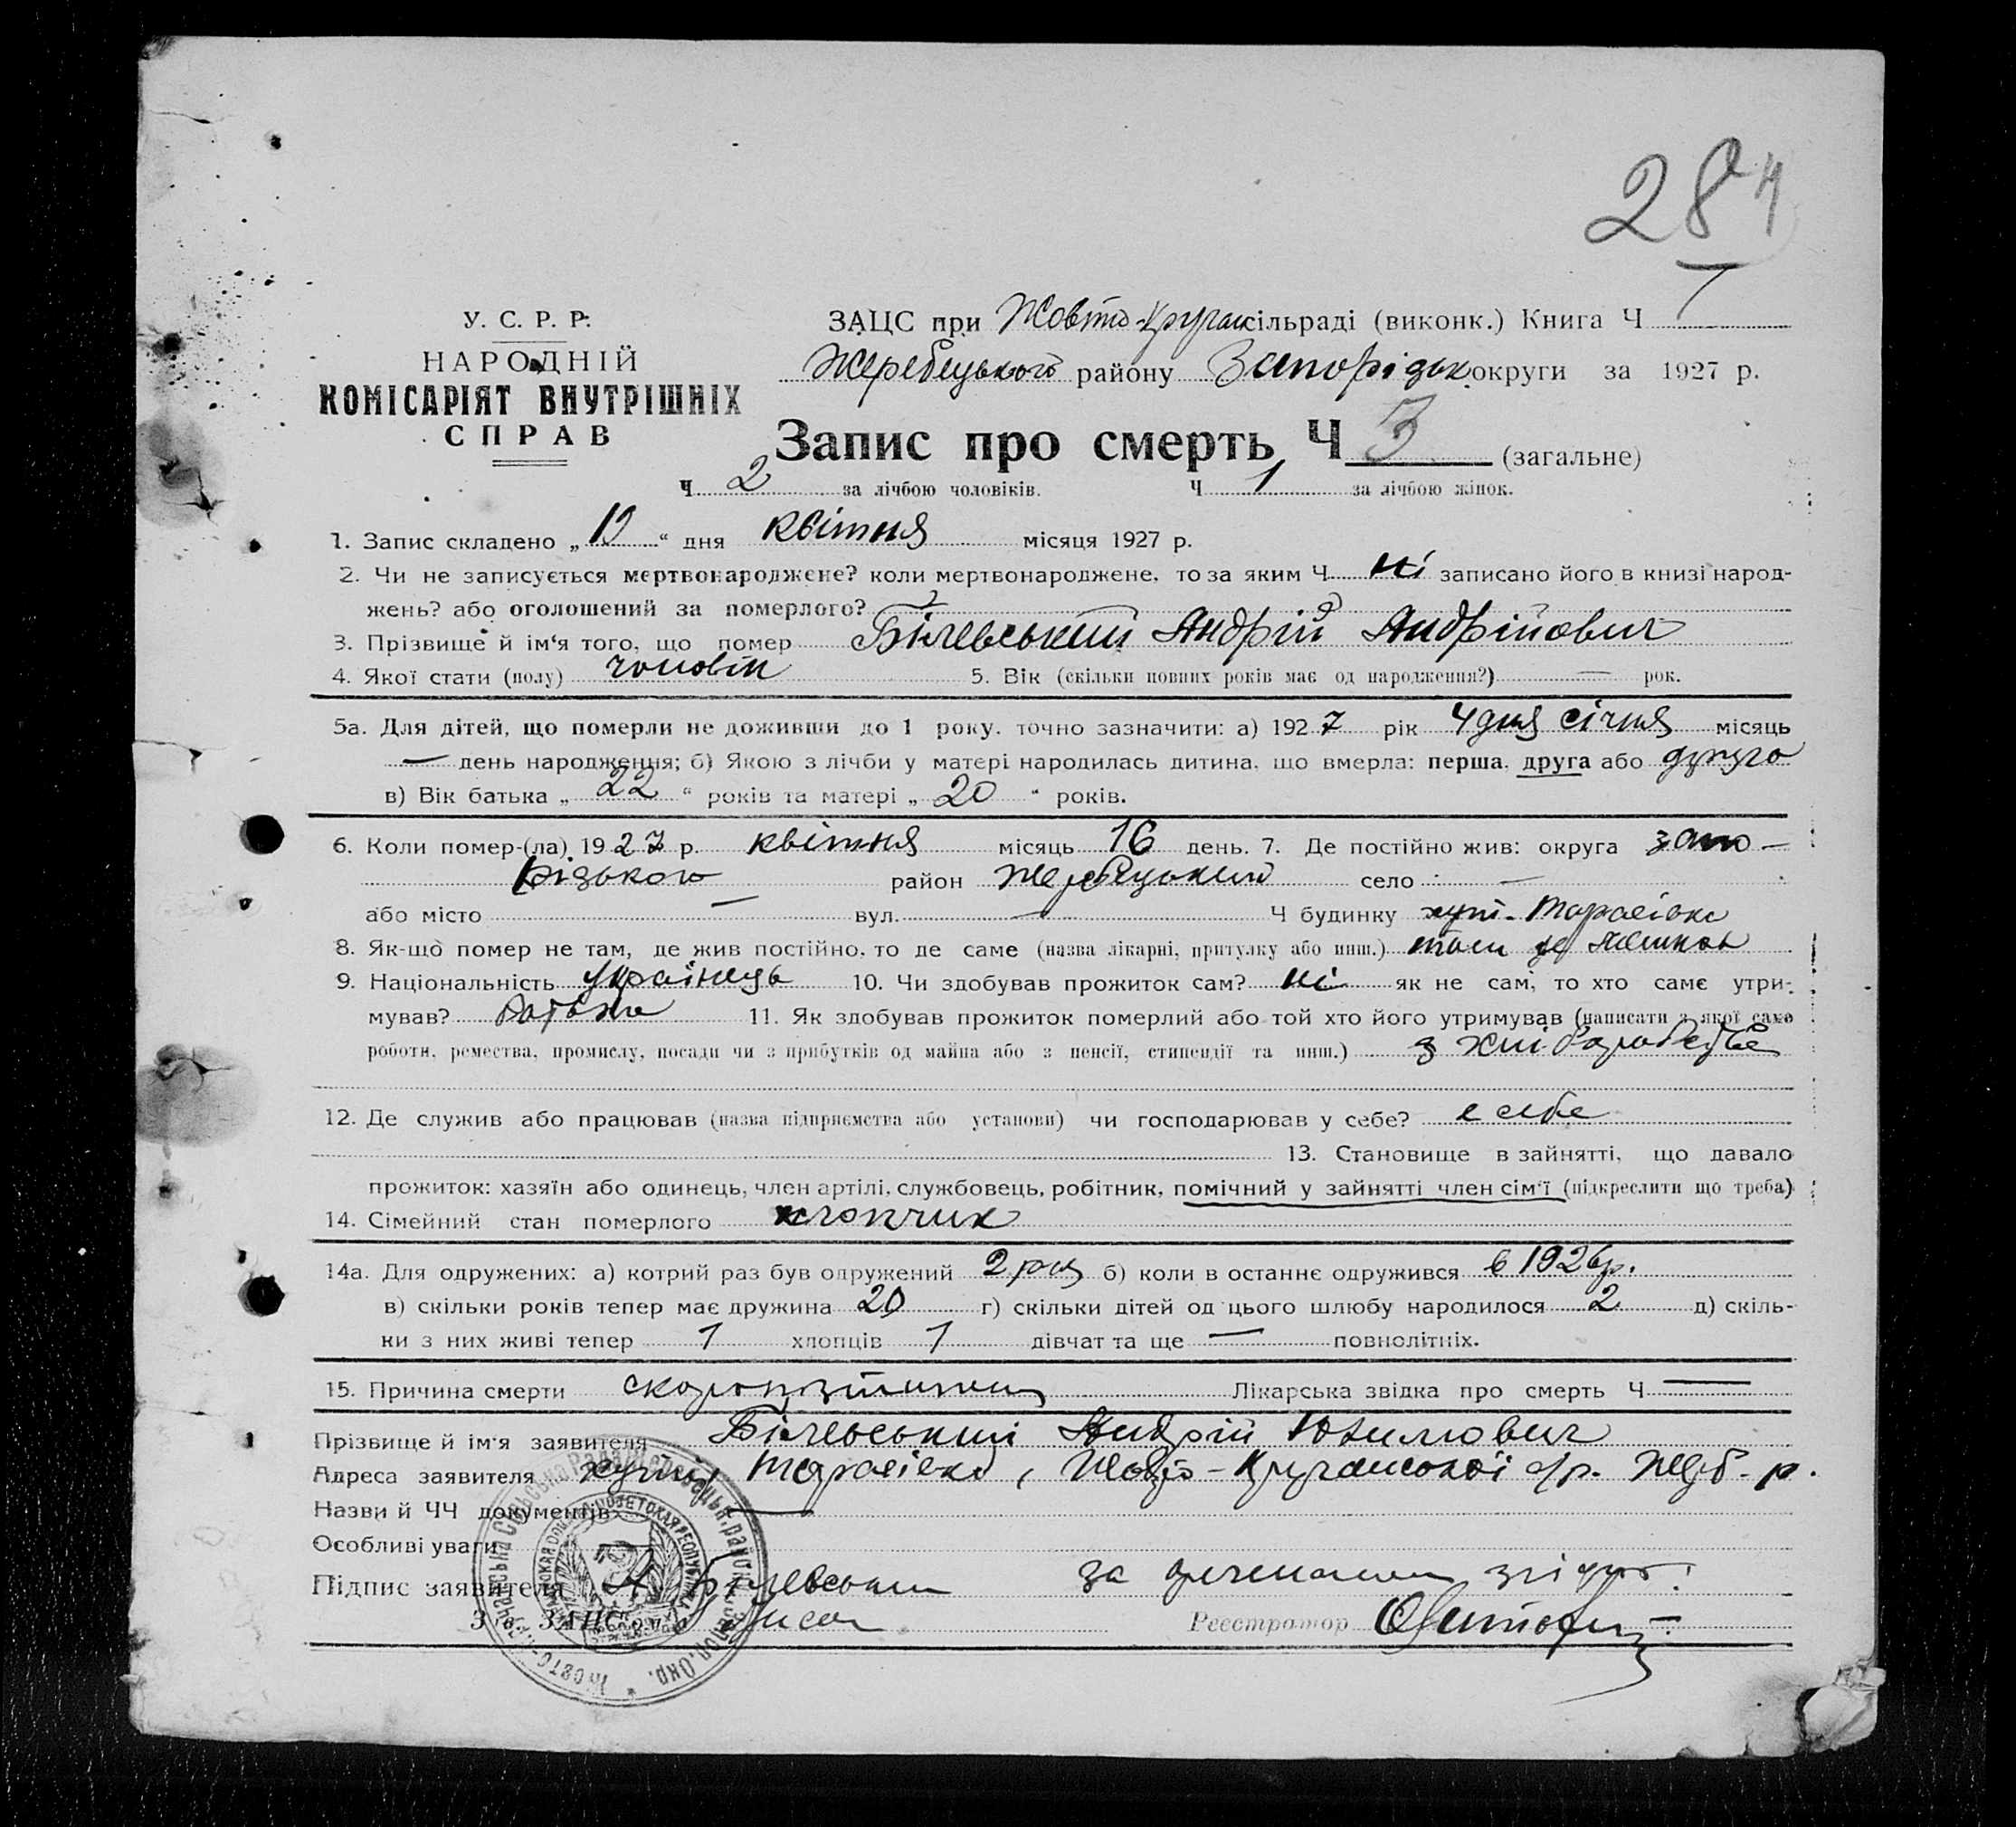 284
У. С. Р. Р.
НАРОДНІЙ
КОМІСАРІЯТ ВНУТРІШНІХ
СПРАВ
ЗАЦС при Жовто-Кручан сільраді (виконк.) Книга Ч 1
Жеребецького району Запорізьк округи за 1927 р.
Запис про смерть Ч 3 (загальне)
Ч 2 за лічбою чоловіків. Ч 1 за лічбою жінок.
1. Запис складено „ 19 “ дня квітня місяця 1927 р.
2. Чи не записується мертвонароджене? коли мертвонароджене, то за яким Ч ні записано його в книзі народ-
жень? або оголошений за померлого?
3. Прізвище й ім‘я того, що помер Білевський Андрій Андрійович
4. Якої стати (полу) чоловік 5. Вік (скільки повних років має од народження?) — рок.
5а. Для дітей, що померли не доживши до 1 року. точно зазначити: а) 1927 рік 4 дня січня місяць
— день народження; б) Якою з лічби у матері народилась дитина, що вмерла: перша, друга або друга
в) Вік батька „ 22 “ років та матері „ 20 “ років.
6. Коли помер-(ла) 1927 р. квітня місяць 16 день. 7. Де постійно жив: округа запо-
різького район Жеребецький село —
або місто — вул. — Ч будинку хут. Тарасівка
8. Як-що помер не там, де жив постійно, то де саме (назва лікарні, притулку або инш.) там де мешкав
9. Національність українець 10. Чи здобував прожиток сам? ні як не сам, то хто саме утри-
мував? батько 11. Як здобував прожиток померлий або той хто його утримував (написати з якої само
роботи, ремества, промислу, посади чи з прибутків од майна або з пенсії, стипендії та инш.) з хліборобства
12. Де служив або працював (назва підприємства або установи) чи господарював у себе? в себе
13. Становище в зайнятті, що давало
прожиток: хазяїн або одинець, член артілі, службовець, робітник, помічний у зайнятті член сім‘ї (підкреслити що треба)
14. Сімейний стан померлого хлопчик
14а. Для одружених: а) котрий раз був одружений 2 раз б) коли в останнє одружився в 1926р.
в) скільки років тепер має дружина 20 г) скільки дітей од цього шлюбу народилося 2 д) скіль-
ки з них живі тепер 1 хлопців 1 дівчат та ще — повнолітніх.
15. Причина смерти Лікарська звідка про смерть Ч —
Прізвище й ім‘я заявителя Білевський Андрій
Адреса заявителя хутір Тарасівка, Жовто-Кручанської с/р. Жереб. р.
Назви й ЧЧ документів —
Особливі уваги
Підпис заявителя А. Білевський за
Зав. ЗАЦС'ом Реєстратор